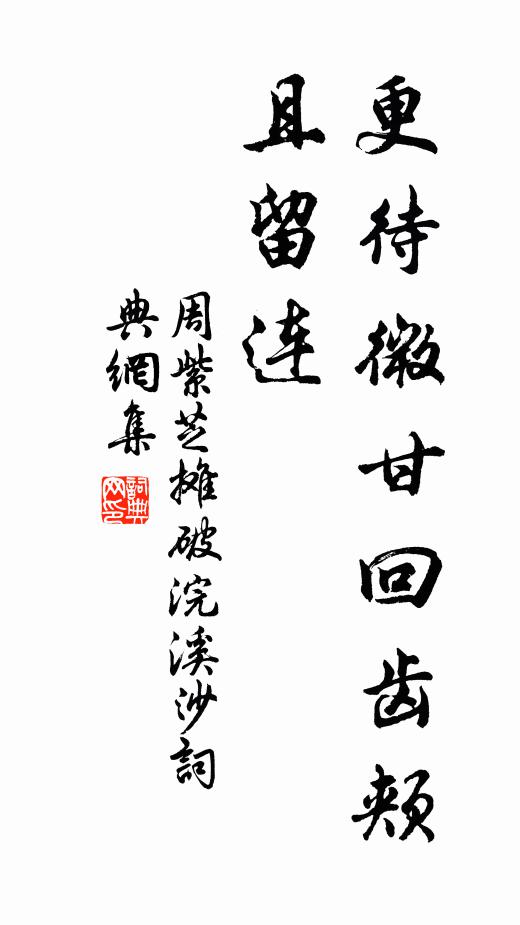 更待微甘回齿颊
且留连
周紫芝摊破浣溪沙詞
典網集
詞典网印